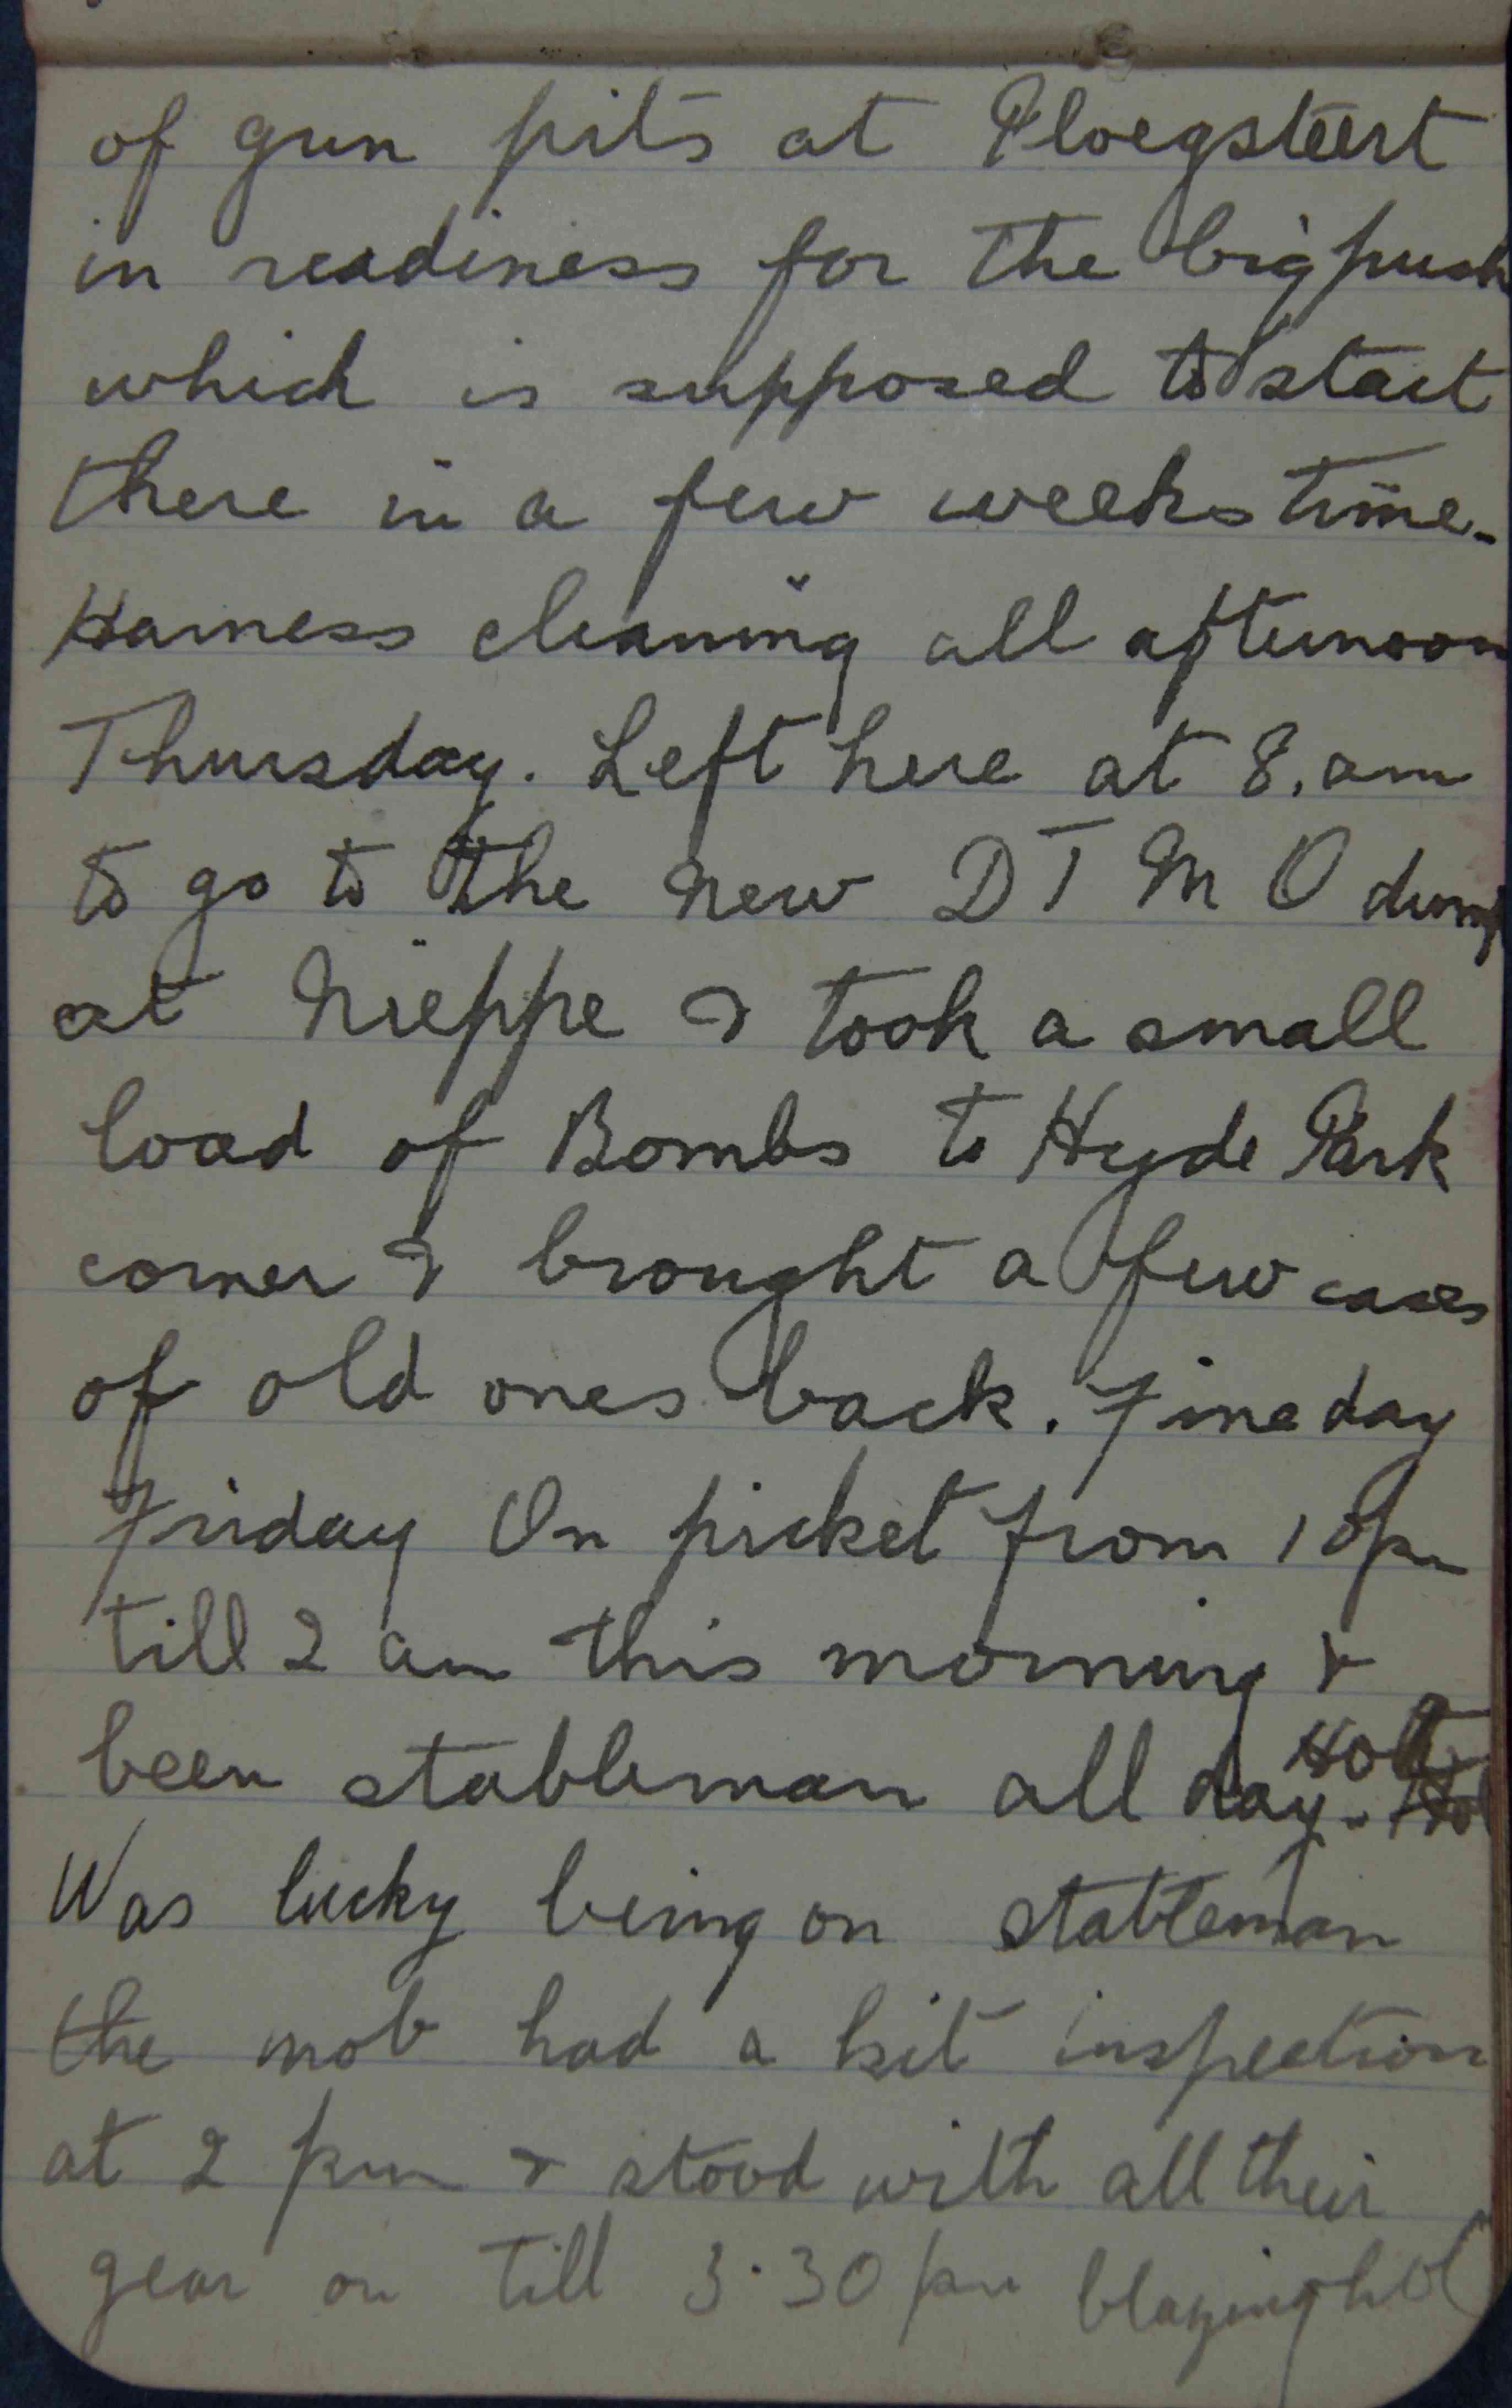 of gun pits at Ploegsteert
in readiness for the big push
which is supposed to start
there in a few weeks time.
Harness cleaning all afternoon
Thursday. Left here at 8. am
to go to the new D T M O dump
at Nieppe & took a small
load of Bombs to Hyde Park
corner & brought a few cases
of old ones back. Fine day
Friday On picket from 10 pm
till 2 am this morning &
been stableman all day.
Was lucky being on stableman
the mob had a kit inspection
at 2 pm & stood with all their
gear on till 3.30 pm blazing hot